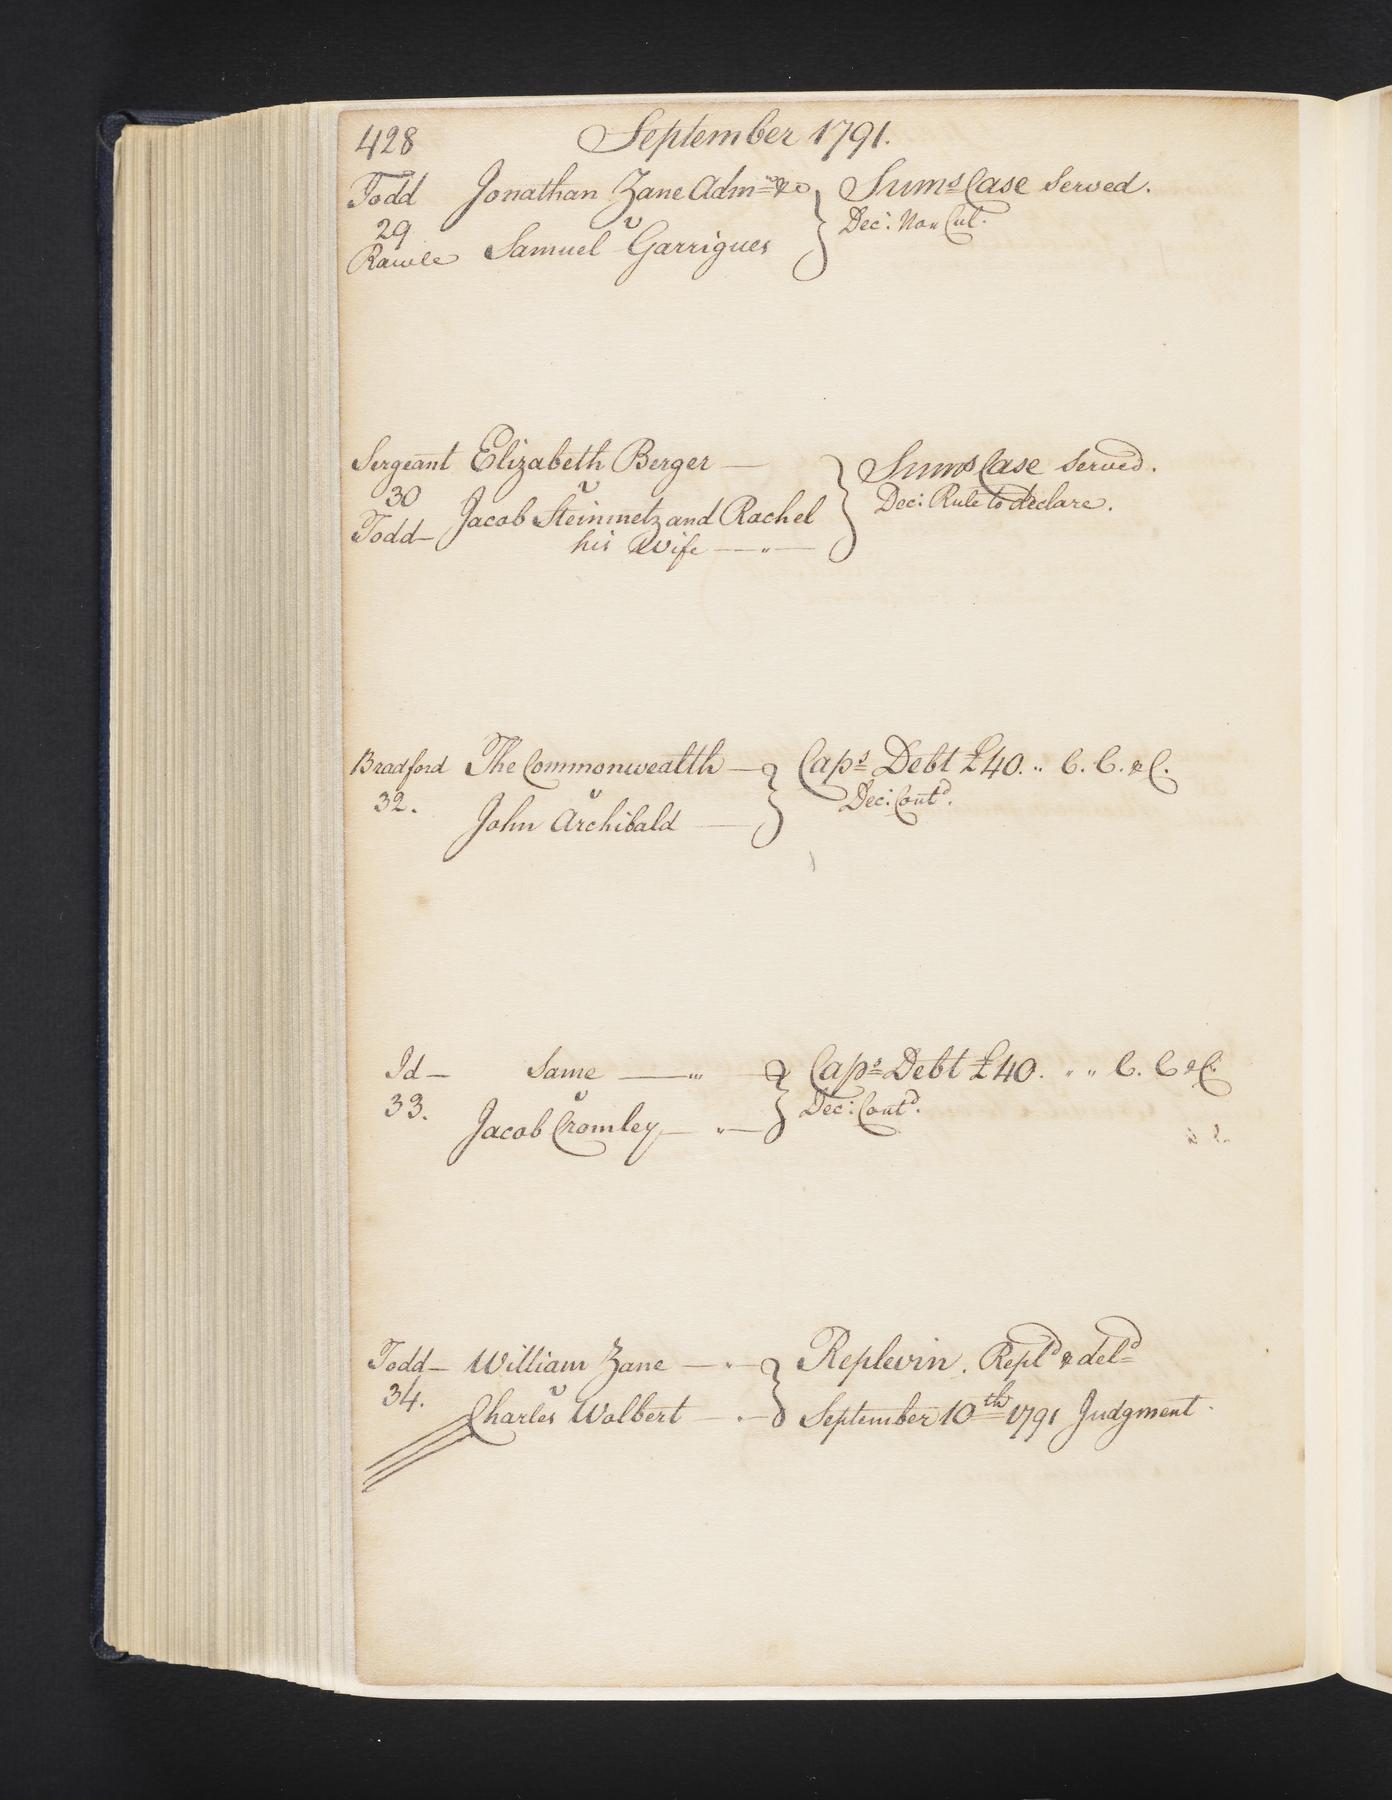 428 September 1791.
Todd Jonathan Zane Adm.ʳ &c Sumˢ Case Served.
29 v Dec: Non Cul.
Rawle Samuel Garrigues
Sergeant Elizabeth Berger — Sumˢ Case Served.
30 v Dec: Rule to declare.
Todd— Jacob Steinmetz and Rachel
his Wife — " —
Bradford The Commonwealth — Capˢ Debt £40. .. C. C. & C.
32. v Dec: Contᵈ.
John Archibald —
Id— Same — " — Capˢ Debt £40. " " C. C & C.
33. v Dec: Contᵈ.
Jacob Cromley — " —
Todd— William Zane — " — Replevin. Replᵈ & delᵈ
34. v
Charles Wolbert — " — September 10th 1791 Judgment.